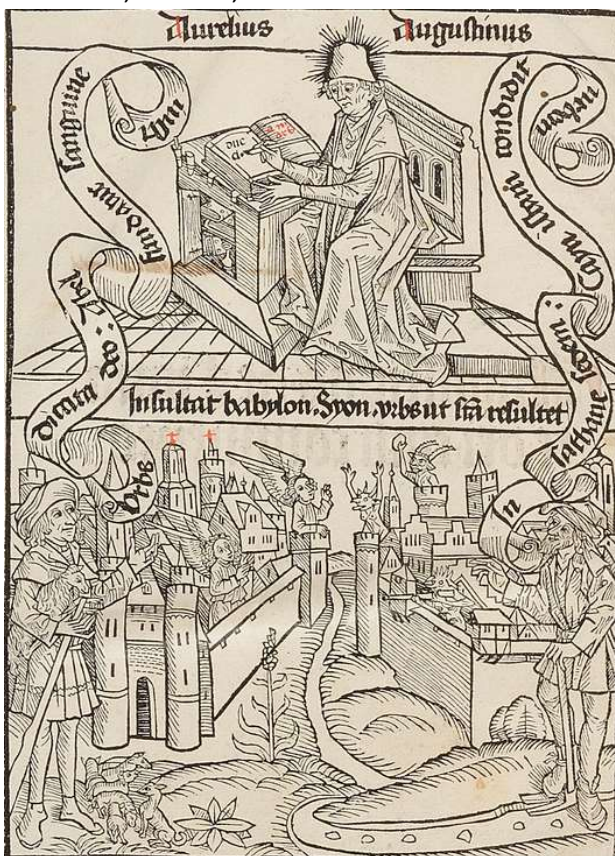 Aurelius Augustinus
Urbs dicata deo : Abel fundatur sanguine
In sathane sedem : Cayn ibimi condidit urbem
Insultat babylon. Syon. urbs ut scta resultet